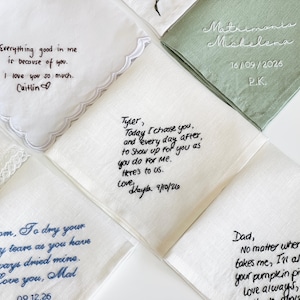 Everything good in me
is because of you.
I love you so much.
Caitlin♡
Matrimonio
16/09/2026
P.K.
Tyler,
Today I choose you,
and every day after,
to show up for you as
you do for me.
Here's to us.
Love,
om, To dry your
y tears as you have
ways dried mine.
ove you, Mal
09.12.26
Dad,
No matter wher
takes me, I'll al
your pumpkin pi
love always,